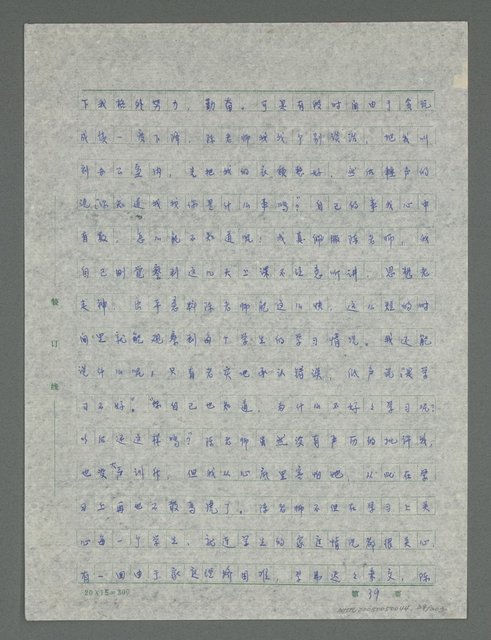 下我格外努力，勤奋。可是有段时间由于贪玩
成绩一度下降，陈老师找我个别谈话，把我叫
到办公室内，先把我的衣领整好，然后轻声的
说“你知道我找你是什么事吗？”自己的事我心中
有数，怎么能不知道呢！我真佩服陈老师，我
自己刚觉察到这几天上课不注意听讲，思想老
走神，出乎意料陈老师能这么快，这么短的时
间里就能观察到每个学生的学习情况。我还能
说什么呢！只有老实地承认错误，低声说“没学
习不好。”“你自己也知道，为什么不好好学习呢？
以后还这样吗？”陈老师虽然没有严厉的批评我，
也没 训斥，但我从心底里害怕她，从此在学
习上再也不敢马虎了。陈老师不但在学习上关
心每一个学生，就连学生的家庭情况都很关心
有一回由于家庭经济困难，学费迟迟未交，陈
装
订
线
20×15=300
第 39 页